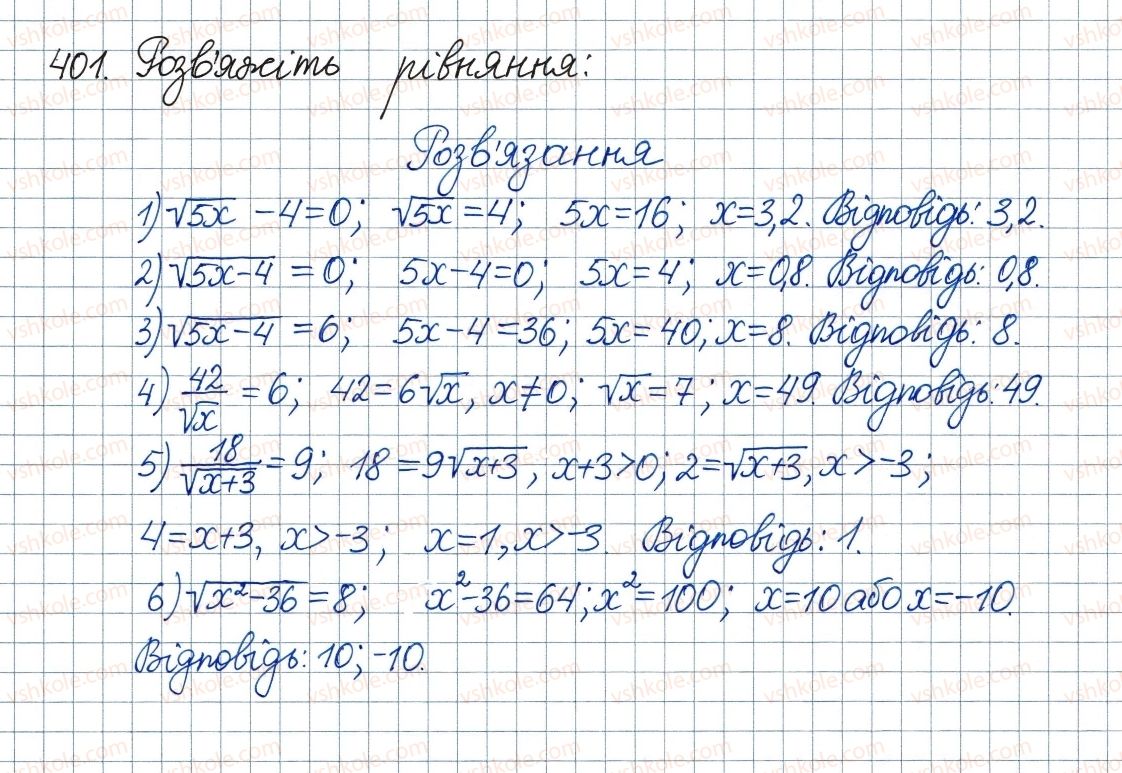 401. Розв'яжіть рівняння:
Розв'язання
1) √5x - 4 = 0; √5x = 4; 5x = 16; x = 3,2. Відповідь: 3,2.
2) √5x-4 = 0; 5x - 4 = 0; 5x = 4; x = 0,8. Відповідь: 0,8.
3) √5x-4 = 6; 5x - 4 = 36; 5x = 40; x = 8. Відповідь: 8.
4) 42/√x = 6; 42 = 6√x, x ≠ 0; √x = 7; x = 49. Відповідь: 49.
5) 18/√x+3 = 9; 18 = 9√x+3, x+3 > 0; 2 = √x+3, x > -3;
4 = x+3, x > -3; x = 1, x > -3. Відповідь: 1.
6) √x²-36 = 8; x²-36 = 64; x² = 100; x = 10 або x = -10.
Відповідь: 10; -10.
vshkole.com